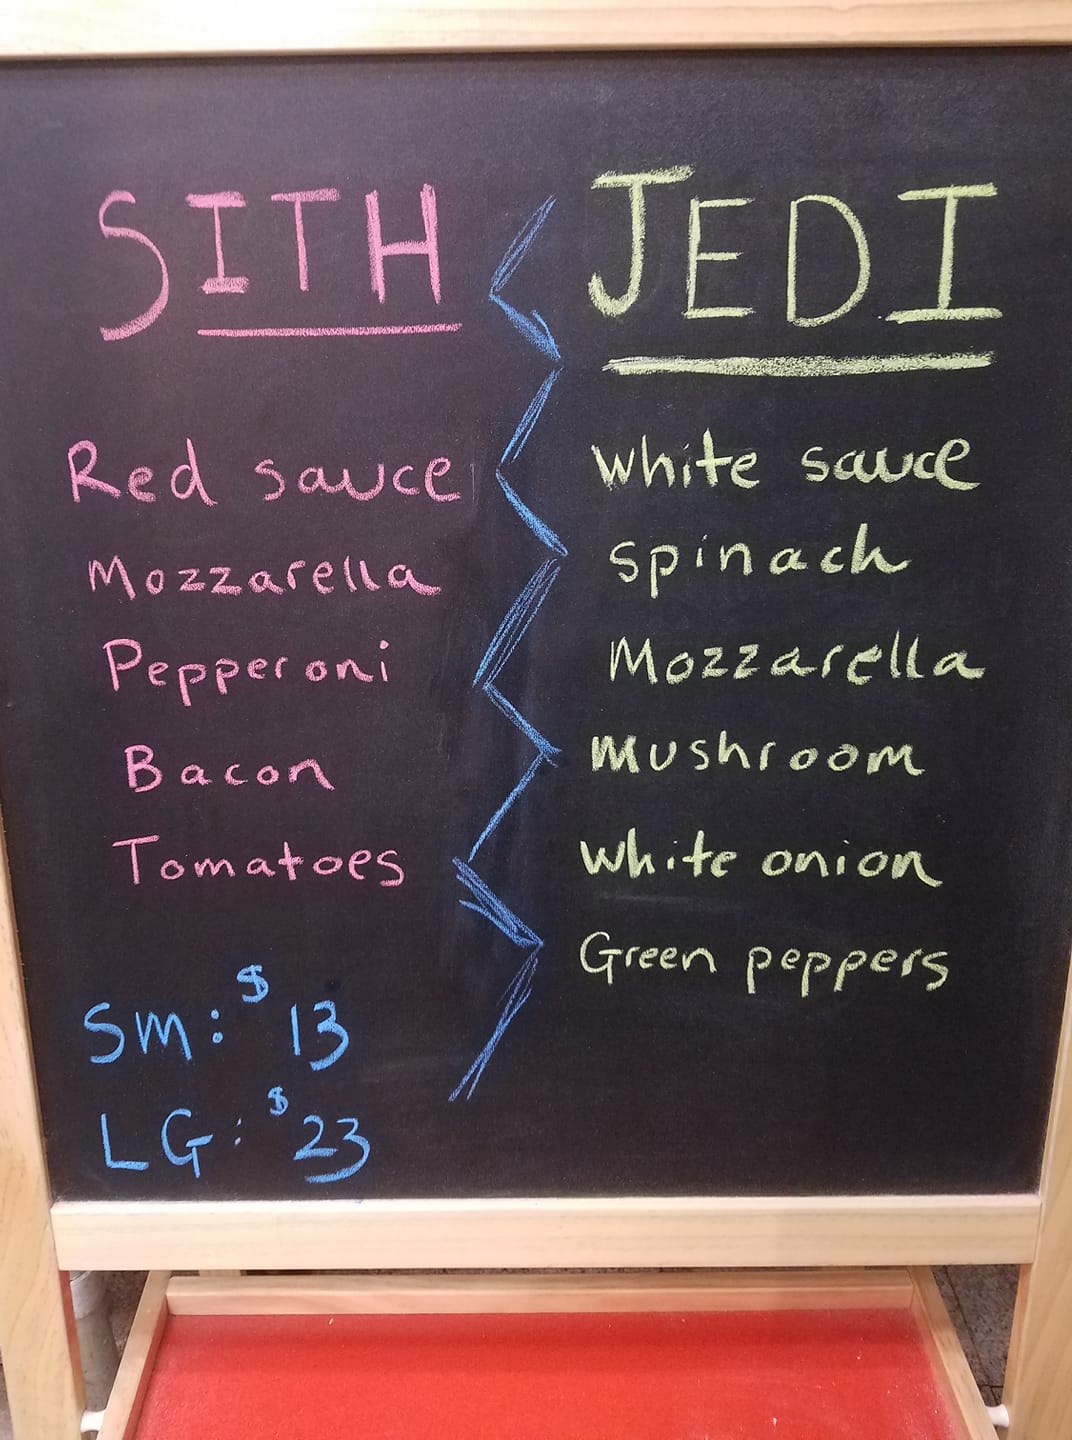 SITH
Red sauce
Mozzarella
Pepperoni
Bacon
Tomatoes
Sm: $13
LG: $23
JEDI
White sauce
Spinach
Mozzarella
Mushroom
White onion
Green peppers